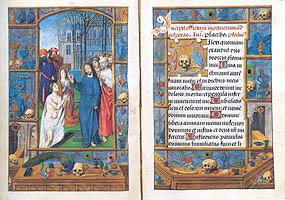 Incipit officium mortuorum ad
vesperas. An. Placebo. Psalmus
Dilexi quoniam
exaudiet dns
vocem oratio
nis mee. Quia
inclinavit aurem
suam michi et in diebus meis
invocabo. Circumdederunt me
dolores mortis et pericula
inferni invenerunt me. Tribulatio
nem et dolorem inveni et nomen
domini invocavi. O domine
libera animam meam misericors
dominus et iustus et deus noster
miseretur. Custodiens parvulos
dominus humiliatus sum et li